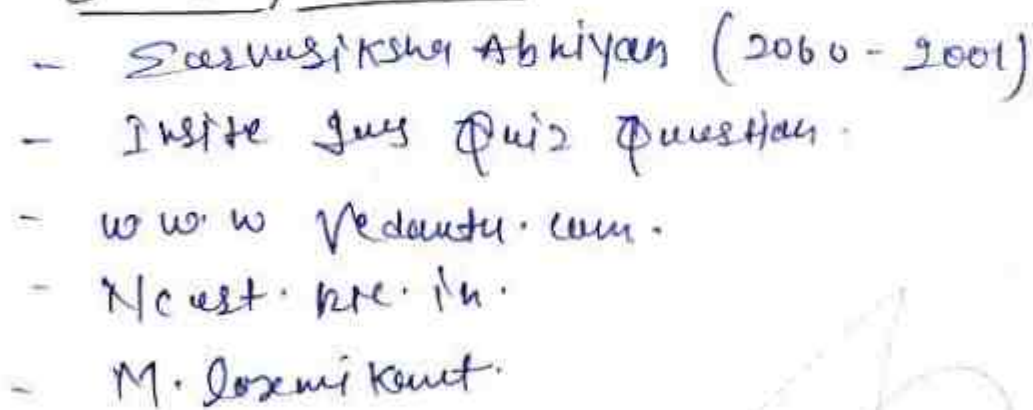 - Sarvasiksha Abhiyan (2000 - 2001)
- Insite Ias Quiz Question.
- www Vedantu.com.
- Ncert. nic. in.
- M. Laxmi Kant.